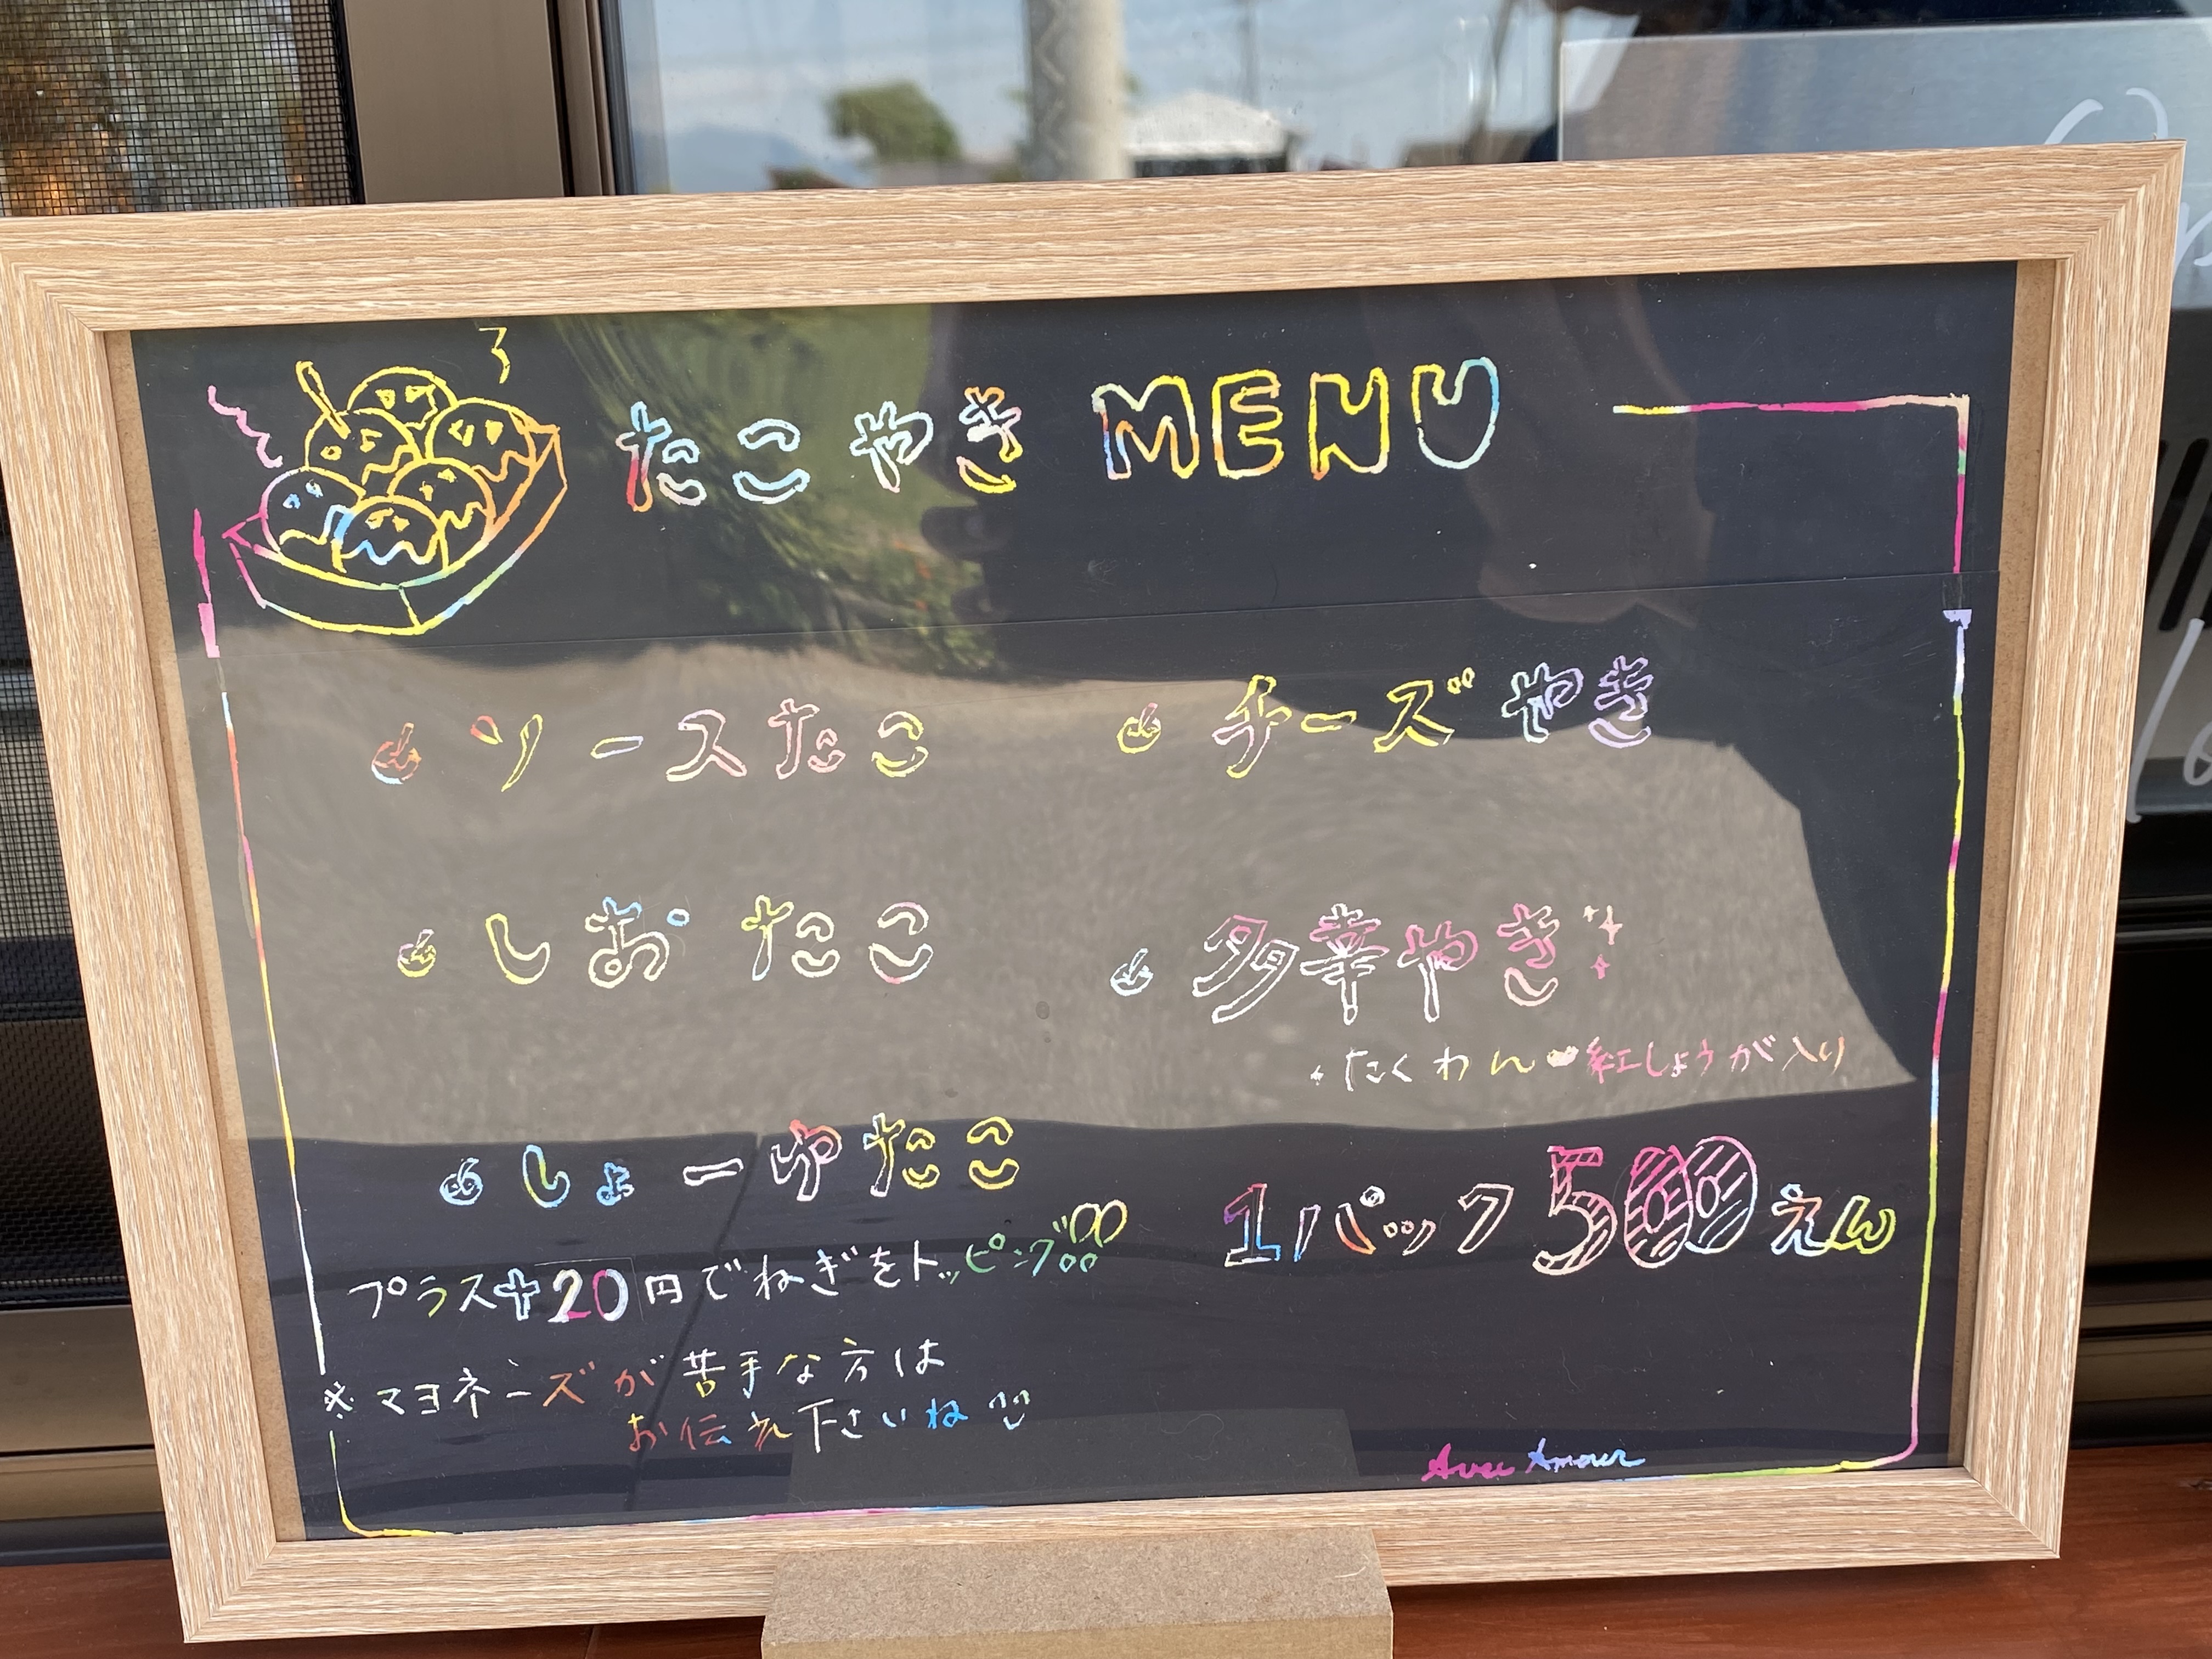 たこやき MENU
ソースたこ
しおたこ
しょーゆたこ
プラス+20円でねぎをトッピング
※マヨネーズが苦手な方は
お伝え下さいね
チーズやき
多華やき
たくわん 紅しょうが入り
1パック500えん
Avec Amour